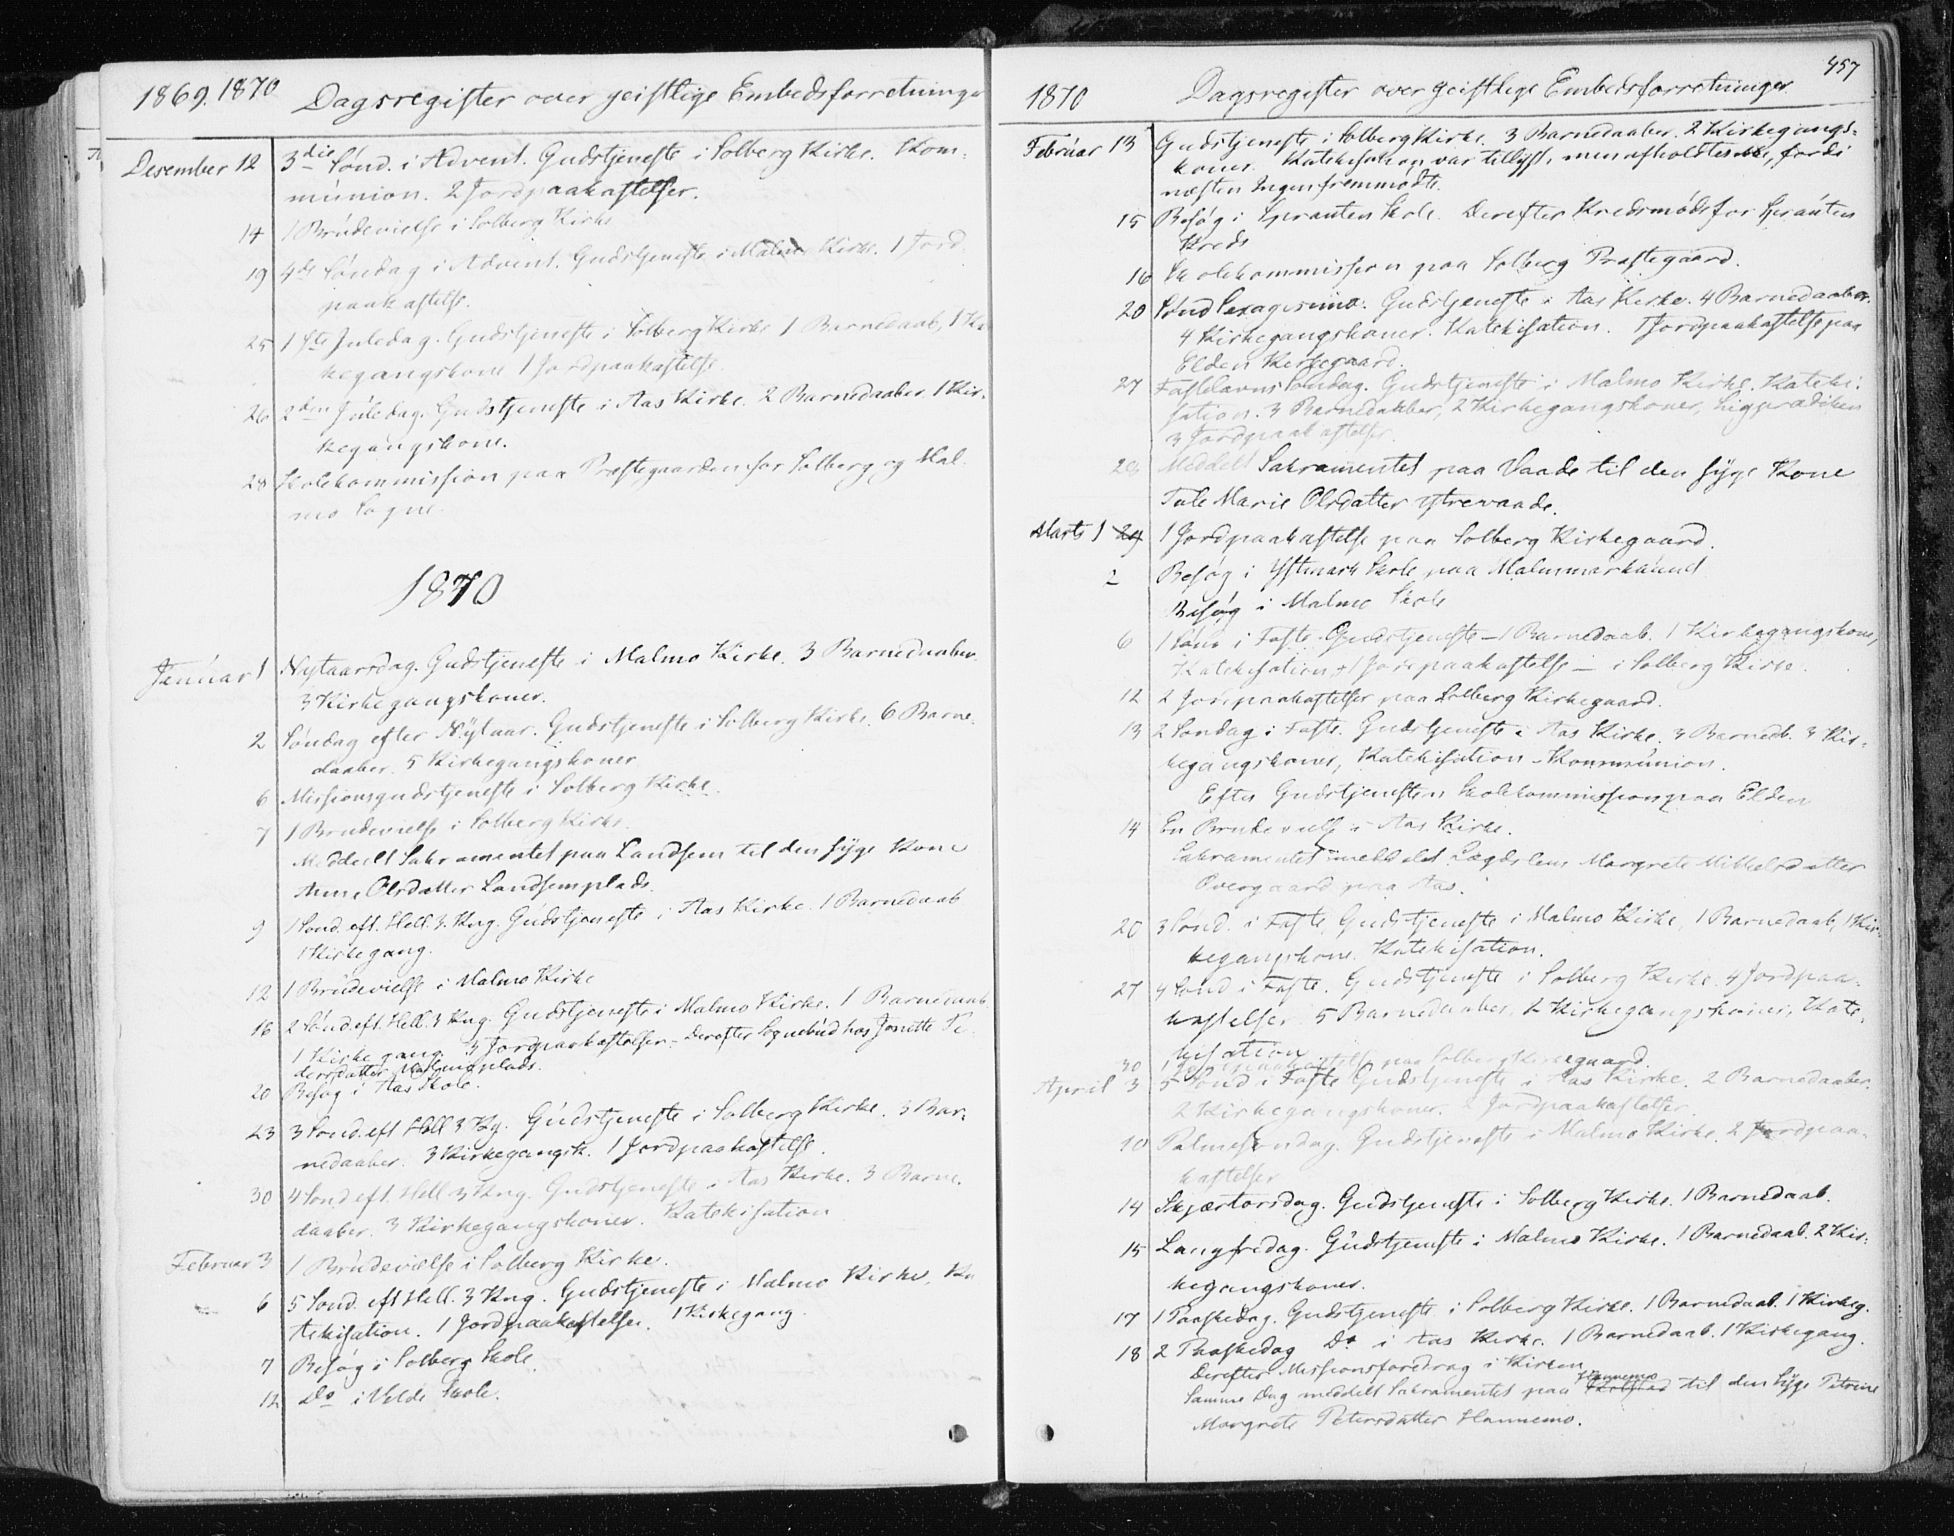 1869. 1870 Dagsregister over geistlige Embedsforretninger
Desember 12 3die Sønd. i Advent. Gudstjeneste i Solberg Kirke. Kom-
munion. 2 Jordpaakastelser.
14 1 Brudevielse i Solberg Kirke
19 4de Søndag i Advent. Gudstjeneste i Malmo Kirke. 1 Jord-
paakastelse.
25 1ste Juledag. Gudstjeneste i Solberg Kirke 1 Barnedaab, 1 Kir-
kegangskone 1 Jordpaakastelse
26 2den Juledag. Gudstjeneste i Aas Kirke. 2 Barnedaaber. 1 Kir-
kegangskone.
28 Skolekommission paa Præstegaarden for Solberg og Mal-
mo Sogne.
1870
Januar 1 Nytaarsdag. Gudstjeneste i Malmo Kirke. 3 Barnedaaber.
3 Kirkegangskoner.
2 Søndag efter Nytaar. Gudstjeneste i Solberg Kirke. 6 Barne-
daaber. 5 Kirkegangskoner
6 Missionsgudstjeneste i Solberg Kirke.
7 1 Brudevielse i Solberg Kirke.
Meddeelt Sakramentet paa Landsem til den syge Kone
Anne Olsdatter Landsemplads.
9 1 Sønd. eft. Hell. 3. Kng. Gudstjeneste i Aas Kirke. 1 Barnedaab
1 Kirkegang.
12 1 Brudevielse i Malmo Kirke
16 2 Sønd. eft. Hell. 3 Kng. Gudstjeneste i Malmo Kirke. 1 Barnedaab.
1 Kirkegang. 3 Jordpaakastelser. Derefter Sognebud hos Jonette Pe-
dersdatter
20 Besøg i Aas Skole.
23 3 Sønd. eft Hell 3 Kg. Gudstjeneste i Solberg Kirke. 3 Bar-
nedaaber. 3 Kirkegangsk. 1 Jordpaakastelse.
30 4 Sønd eft. Hell 3 Kng. Gudstjeneste i Aas Kirke. 3 Barne-
daaber. 3 Kirkegangskoner. Katekisation
Februar 3 1 Brudevielse i Solberg Kirke.
6 5 Sønd. eft Hell. 3 Kng. Gudstjeneste i Malmo Kirke. Ka-
tekisation. 1 Jordpaakastelse. 1 Kirkegang.
7 Besøg i Solberg Skole.
12 Do i Velde Skole.
457
1870 Dagsregister over geistlige Embedsforretninger
Februar 13 Gudstjeneste i Solberg Kirke. 3 Barnedaaber. 2 Kirkegangs-
koner. Katekisation var tillyst, men afholdtes ikke, fordi
næsten Ingen fremmødte.
15 Besøg i Skole. Derefter Kredsmøde for
Kreds
16 Skolekommission paa Solberg Præstegaard.
20 Sønd Sexagesima. Gudstjeneste i Aas Kirke. 4 Barnedaaber.
4 Kirkegangskoner. Katekisation. 1 Jordpaakastelse paa
Elden Kirkegaard.
27 Fastelavns Søndag. Gudstjeneste i Malmo Kirke. Kateki-
sation. 3 Barnedaaber, 2 Kirkegangskoner, Ligprædiken
3 Jordpaakastelser.
28 Meddelt Sakramentet paa Vaade til den syge Kone
Marie Olsdatter Ystrevaade.
Marts 1 29 1 Jordpaakastelse paa Solberg Kirkegaard.
2 Besøg i Skole paa
Besøg i Malmo Skole
6 1 Sønd i Faste. Gudstjeneste – 1 Barnedaab. 1 Kirkegangskone,
Katekisation + 1 Jordpaakastelse – i Solberg Kirke.
12 2 Jordpaakastelser paa Solberg Kirkegaard.
13 2 Søndag i Faste. Gudstjeneste i Aas Kirke. 3 Barned. 3 Kir-
kegangskoner, Katekisation. Kommunion.
Efter Gudstjenesten Skolekommission paa Elden
14 En Brudevielse i Aas Kirke.
Sakramentet meddelt Lægdslem Margrete Mikkelsdatter
Overgaard paa Aas.
20 3 Sønd. i Faste, Gudstjeneste i Malmo Kirke, 1 Barnedaab, 1 Kir-
kegangskone. Katekisation.
27 4 Sønd i Faste. Gudstjeneste i Solberg Kirke. 4 Jordpaa-
kastelser. 5 Barnedaaber, 2 Kirkegangskoner, Kate-
kisation
30 1 Jordpaakastelse paa Solberg Kirkegaard.
April 3 5 Sønd i Faste Gudstjeneste i Aas Kirke. 2 Barnedaaber.
2 Kirkegangskoner. Jordpaakastelser.
10 Palmesøndag. Gudstjeneste i Malmo Kirke. 2 Jordpaa-
kastelser
14 Skjærtorsdag. Gudstjeneste i Solberg Kirke. 1 Barnedaab.
15 Langfredag. Gudstjeneste i Malmo Kirke. 1 Barnedaab. 2 Kir-
kegangskoner.
17 1 Paaskedag. Gudstjeneste i Solberg Kirke. 1 Barnedaab. 1 Kirkeg.
18 2 Paaskedag Do i Aas Kirke. 1 Barnedaab. 1 Kirkegang.
Derefter Missionsforedrag i Kirken
Samme Dag meddelt Sakramentet paa Hannemo til den syge Petrine
Margrete Petersdatter Hannemo.